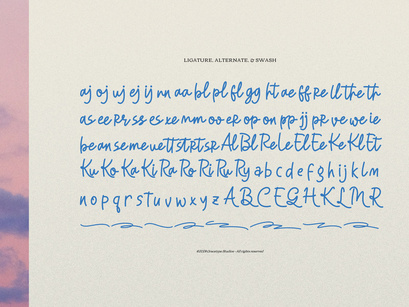 LIGATURE, ALTERNATE, & SWASH
aj oj uj ej ij nn aa bl pl fl gg ht ae ff re ll the th
as ee rr ss es xe mm oo er op on pp jj pr ve we ie
be an se me ue tt st rt sr Al Bl Re Le El Ee Ke Kl Et
Ku Ko Ka Ki Ra Ro Ri Ru Ry a b c d e f g h i j k l m
n o p q r s t u v w x y z A B C E G H K L M R